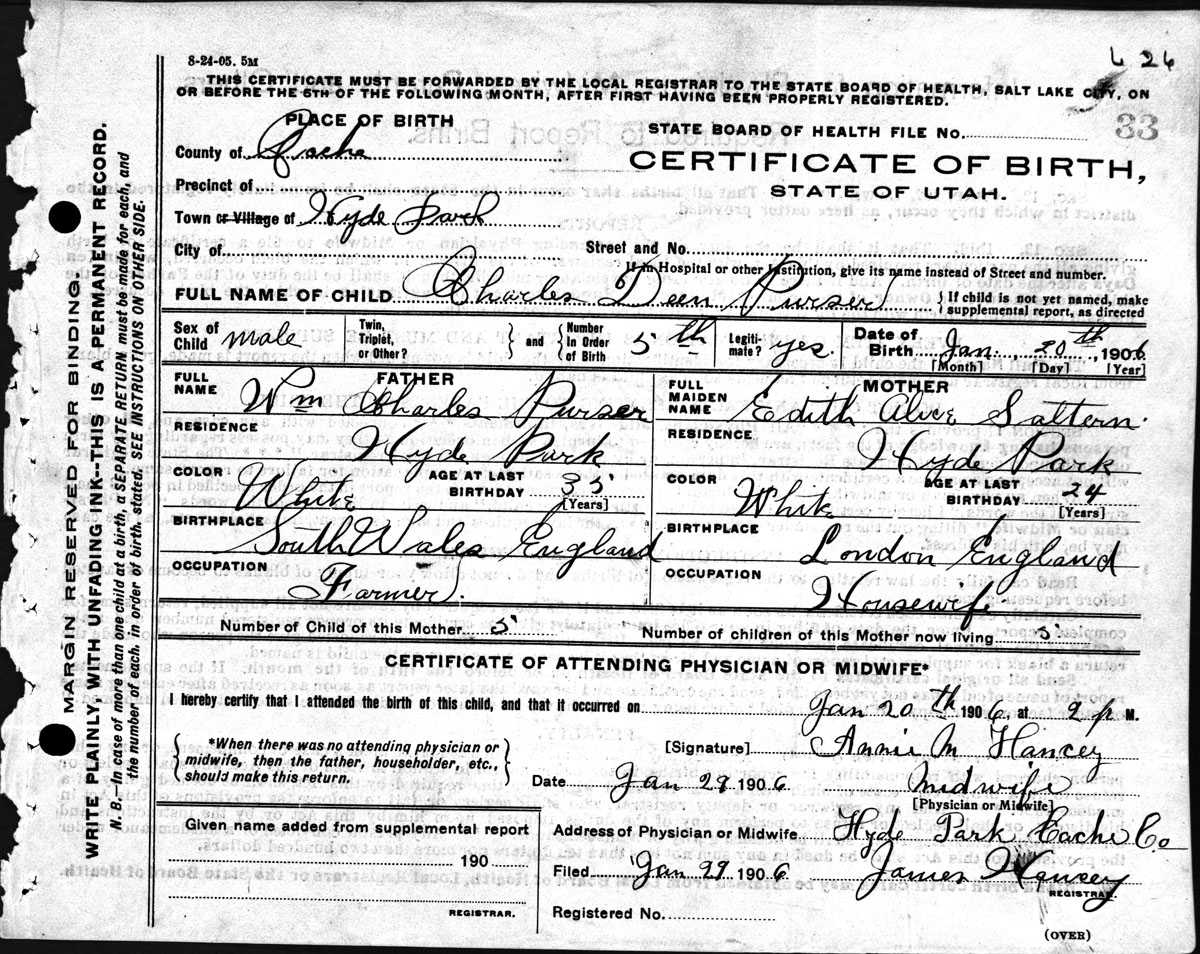 8-24-05. 5M
426
THIS CERTIFICATE MUST BE FORWARDED BY THE LOCAL REGISTRAR TO THE STATE BOARD OF HEALTH, SALT LAKE CITY, ON
OR BEFORE THE 5TH OF THE FOLLOWING MONTH, AFTER FIRST HAVING BEEN PROPERLY REGISTERED.
PLACE OF BIRTH
STATE BOARD OF HEALTH FILE No. 33
County of Cache
CERTIFICATE OF BIRTH,
Precinct of
STATE OF UTAH.
Town or Village of Hyde Park
City of
Street and No.
If in Hospital or other Institution, give its name instead of Street and number.
FULL NAME OF CHILD Charles Deen Purser } If child is not yet named, make
supplemental report, as directed
Sex of Child male Twin, Triplet, or Other? } and { Number In Order of Birth 5th Legiti-mate? yes. Date of Birth Jan. 20th, 1906
[Month] [Day] [Year]
FATHER
FULL NAME Wm Charles Purser
RESIDENCE Hyde Park
COLOR White AGE AT LAST BIRTHDAY 35
[Years]
BIRTHPLACE South Wales, England
OCCUPATION Farmer.
MOTHER
FULL MAIDEN NAME Edith Alice Saltern.
RESIDENCE Hyde Park
COLOR White AGE AT LAST BIRTHDAY 24
[Years]
BIRTHPLACE London England
OCCUPATION Housewife
Number of Child of this Mother 5 Number of children of this Mother now living 5
CERTIFICATE OF ATTENDING PHYSICIAN OR MIDWIFE*
I hereby certify that I attended the birth of this child, and that it occurred on Jan 20th 1906, at 2 p M.
{ *When there was no attending physician or
midwife, then the father, householder, etc.,
should make this return. }
[Signature] Annie M Hancey
Date Jan 29 1906 midwife
[Physician or Midwife]
Given name added from supplemental report
190
REGISTRAR.
Address of Physician or Midwife Hyde Park Cache Co
Filed Jan 29 1906 James Hancey
REGISTRAR.
Registered No.
(OVER)
MARGIN RESERVED FOR BINDING.
WRITE PLAINLY, WITH UNFADING INK--THIS IS A PERMANENT RECORD.
N. B.--In case of more than one child at a birth, a SEPARATE RETURN must be made for each, and
the number of each, in order of birth, stated. SEE INSTRUCTIONS ON OTHER SIDE.